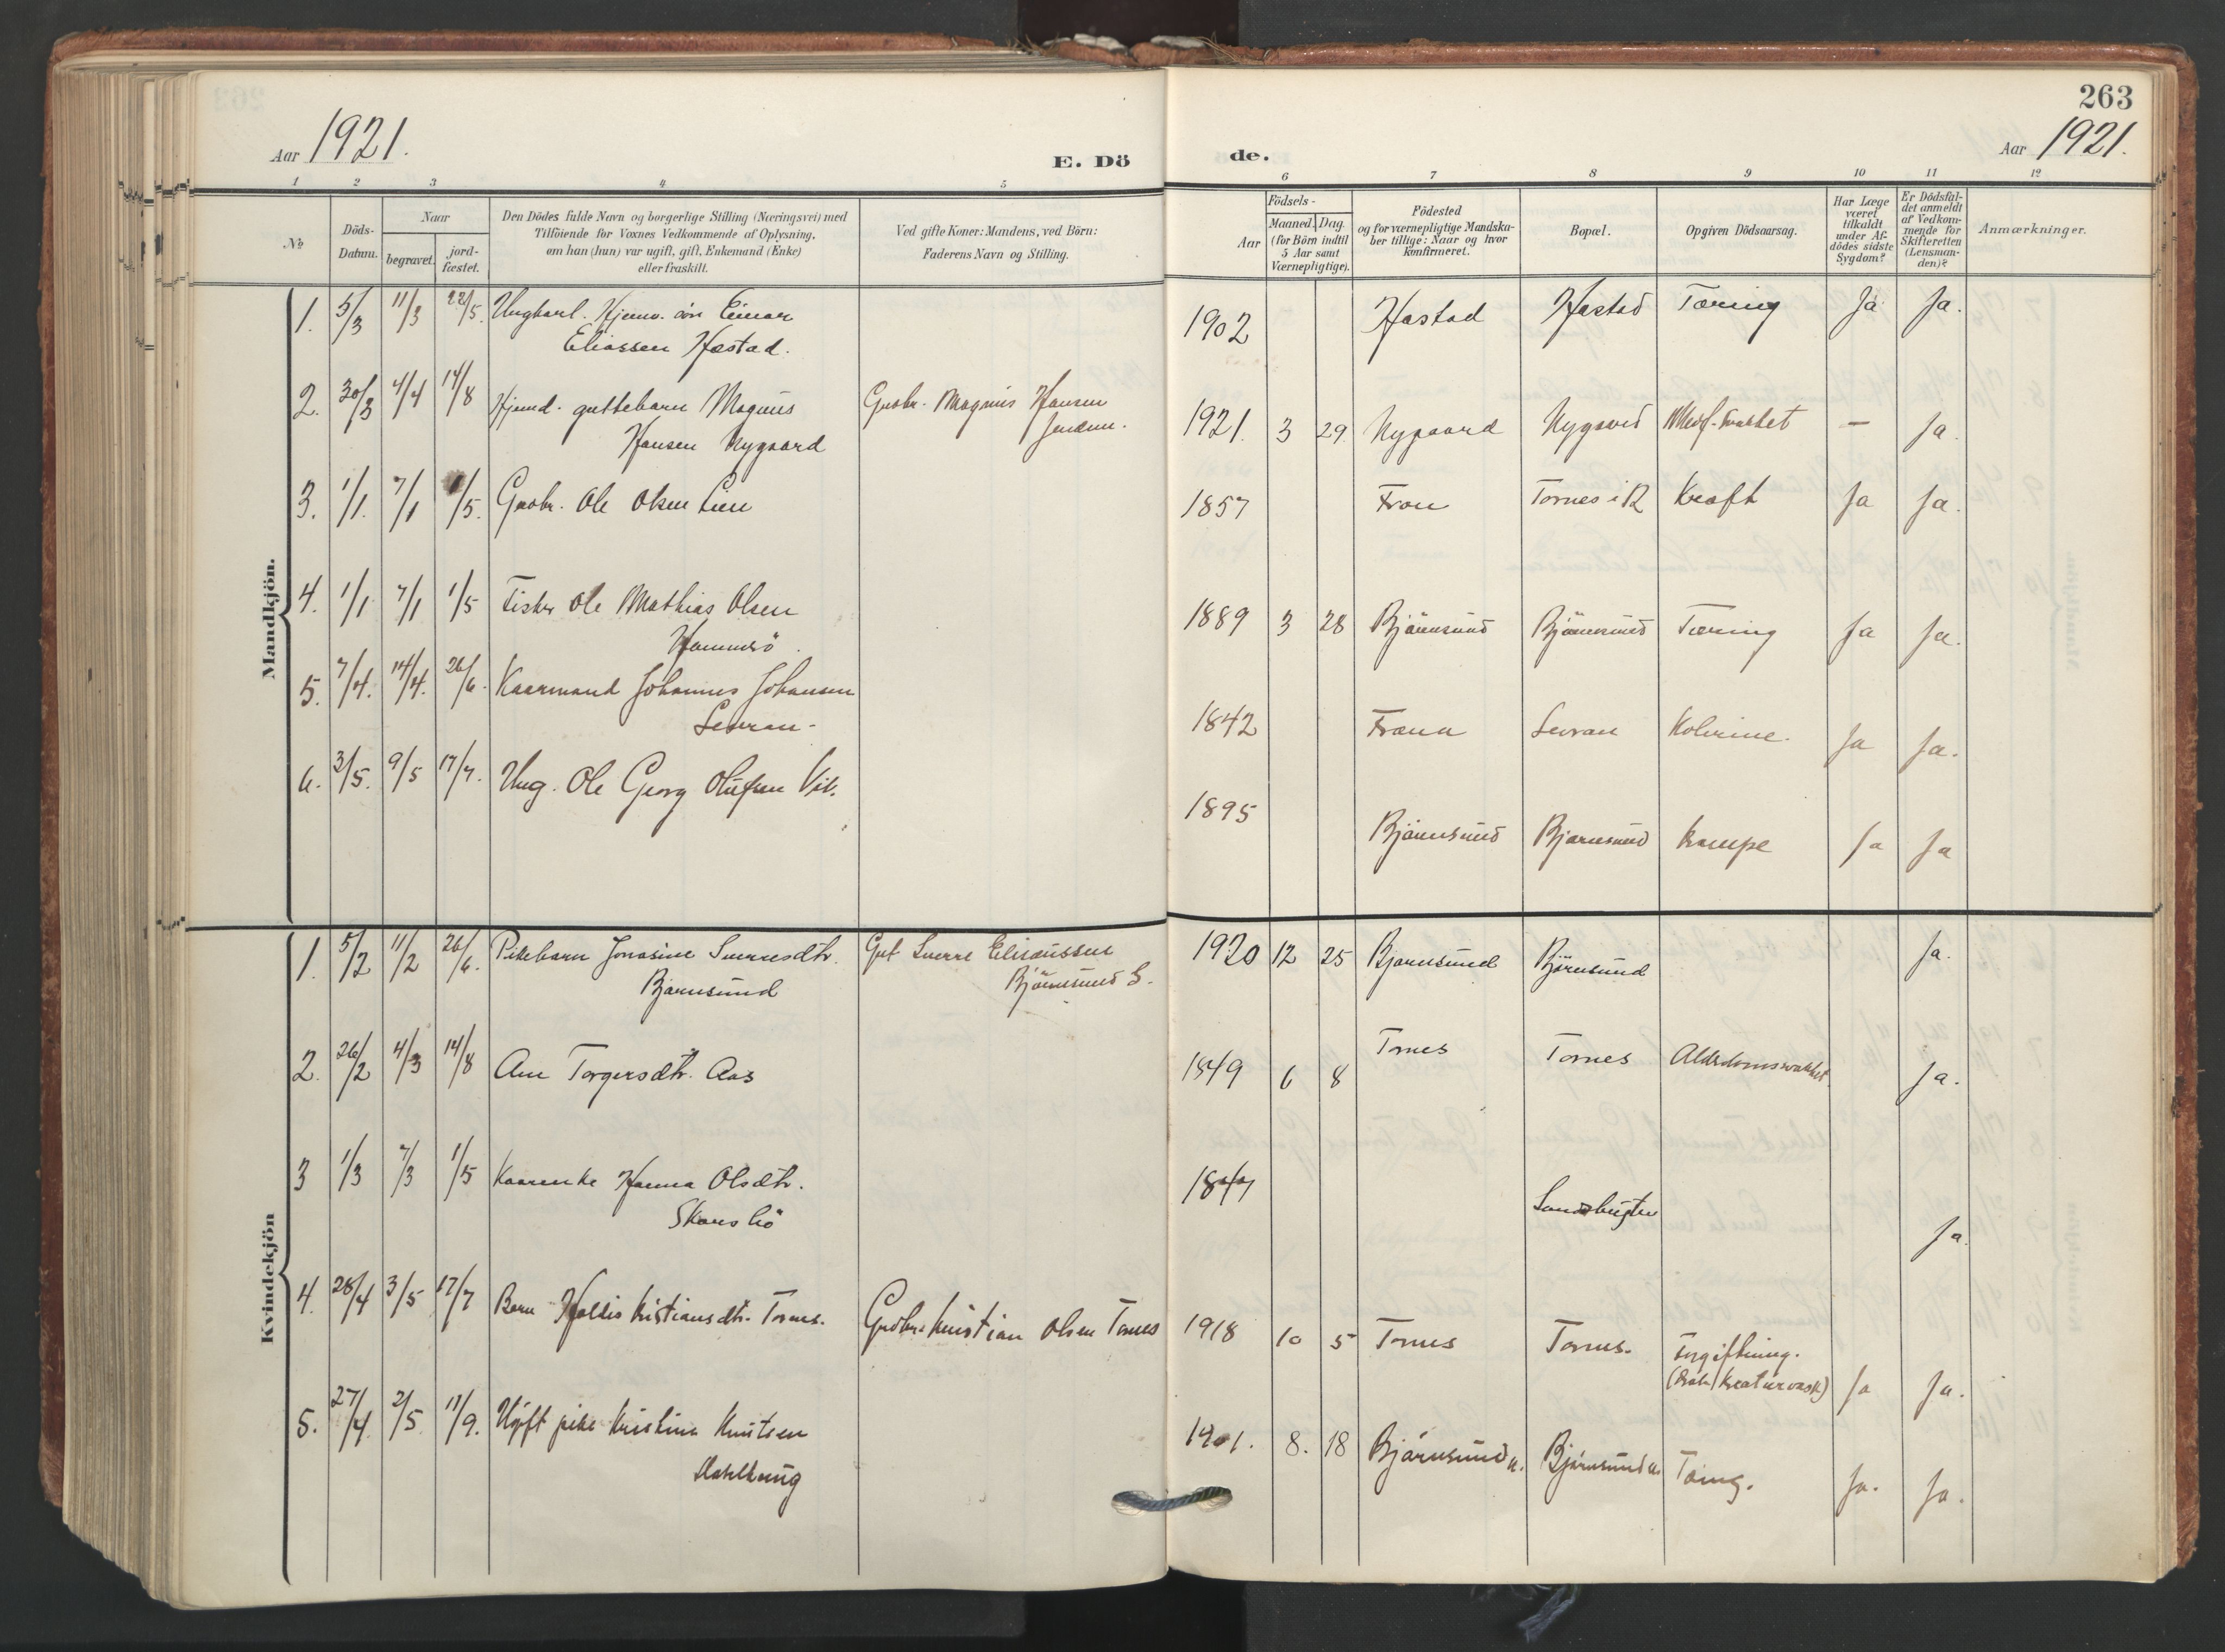 263
Aar 1921.
E. Dö
de.
Aar 1921.
1 2 3 4 5 6 7 8 9 10 11 12
№
Döds-
Datum.
Naar
begravet.
jord-
fæstet.
Den Dödes fulde Navn og borgerlige Stilling (Næringsvei) med
Tilföiende for Voxnes Vedkommende af Oplysning,
om han (hun) var ugift, gift, Enkemand (Enke)
eller fraskilt.
Ved gifte Koner: Mandens, ved Börn:
Faderens Navn og Stilling.
Födsels-
Aar
Maaned. Dag.
(for Börn indtil
5 Aar samt
Værnepligtige).
Födested
og for værnepligtige Mandska-
ber tillige: Naar og hvor
konfirmeret.
Bopæl.
Opgiven Dödsaarsag.
Har Læge
været
tilkaldt
under Af-
dödes sidste
Sygdom?
Er Dödsfal-
det anmeldt
af Vedkom-
mende for
Skifteretten
(Lensman-
den)?
Anmærkninger.
Mandkjön.
1. 5/3 11/3 22/5. Ungkarl. Einar
Eliassen Hastad.
1902 Hastad Hastad Tæring Ja Ja.
2. 30/3 4/4 14/8 Hjemd. guttebarn Magnus
Hansen Nygaard
Gaabr. Magnus Hansen
1921. 3 29. Nygaard Nygaard svakhet — Ja.
3. 1/1. 7/1 1/5. Gaabr. Ole Olsen Lien
1857 Fron Tornes i R Kræft Ja Ja.
4. 1/1 7/1 1/5 Fisker Ole Mathias Olsen
Hammerö.
1889 3 28 Bjørnsund Bjørnsund Tæring Ja Ja.
5. 7/4. 14/4. 26/6. Kaarmand Johannes Johansen
Sevran-
1842 Fræna Sevran Ja Ja.
6. 3/5. 9/5 17/7. Ung. Ole Georg Olufsen Vik.
1895 Bjørnsund Bjørnsund Krampe Ja Ja
Kvindekjön
1. 5/2 11/2 26/6. Pikebarn Jonasine Sverresdtr.
Bjørnsund
Gut Sverre Eliseussen
Bjørnsund S.
1920 12 25 Bjørnsund Bjørnsund Ja.
2. 26/2 4/3 14/8 Ane Torgersdtr. Aas
1849 6 8 Tornes Tornes Alderdomssvakhet Ja.
3 1/3 7/3 1/5 Kaarenke Hanna Olsdtr.
1847 Sandbugten Ja.
4. 28/4 3/5 17/7 Barn Kristiansdtr. Tornes.
Gaabr. Kristian Olsen Tornes
1918 10 5 Tornes Tornes. Forgiftning.
(Kreaturvask) Ja Ja.
5. 27/4 2/5 11/9. Ugift pike Kristine Knutsen
1901. 8. 18 Bjørnsund n. Bjørnsund n. Tæring. Ja. Ja.